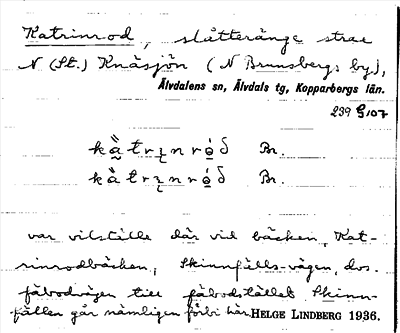 Katrinrod, slåtteränge strax
N (St.) Knäsjön (N Brunsbergs by),
Älvdalens sn, Älvdals tg, Kopparbergs län.
239 G107
Br.
Br.
var vilställe där vid bäcken, Kat-
rinrodbäcken, Skinnfälls-vägen, dvs.
fäbodvägen till fäbodstället Skinn-
fällen går nämligen förbi här. HELGE LINDBERG 1936.